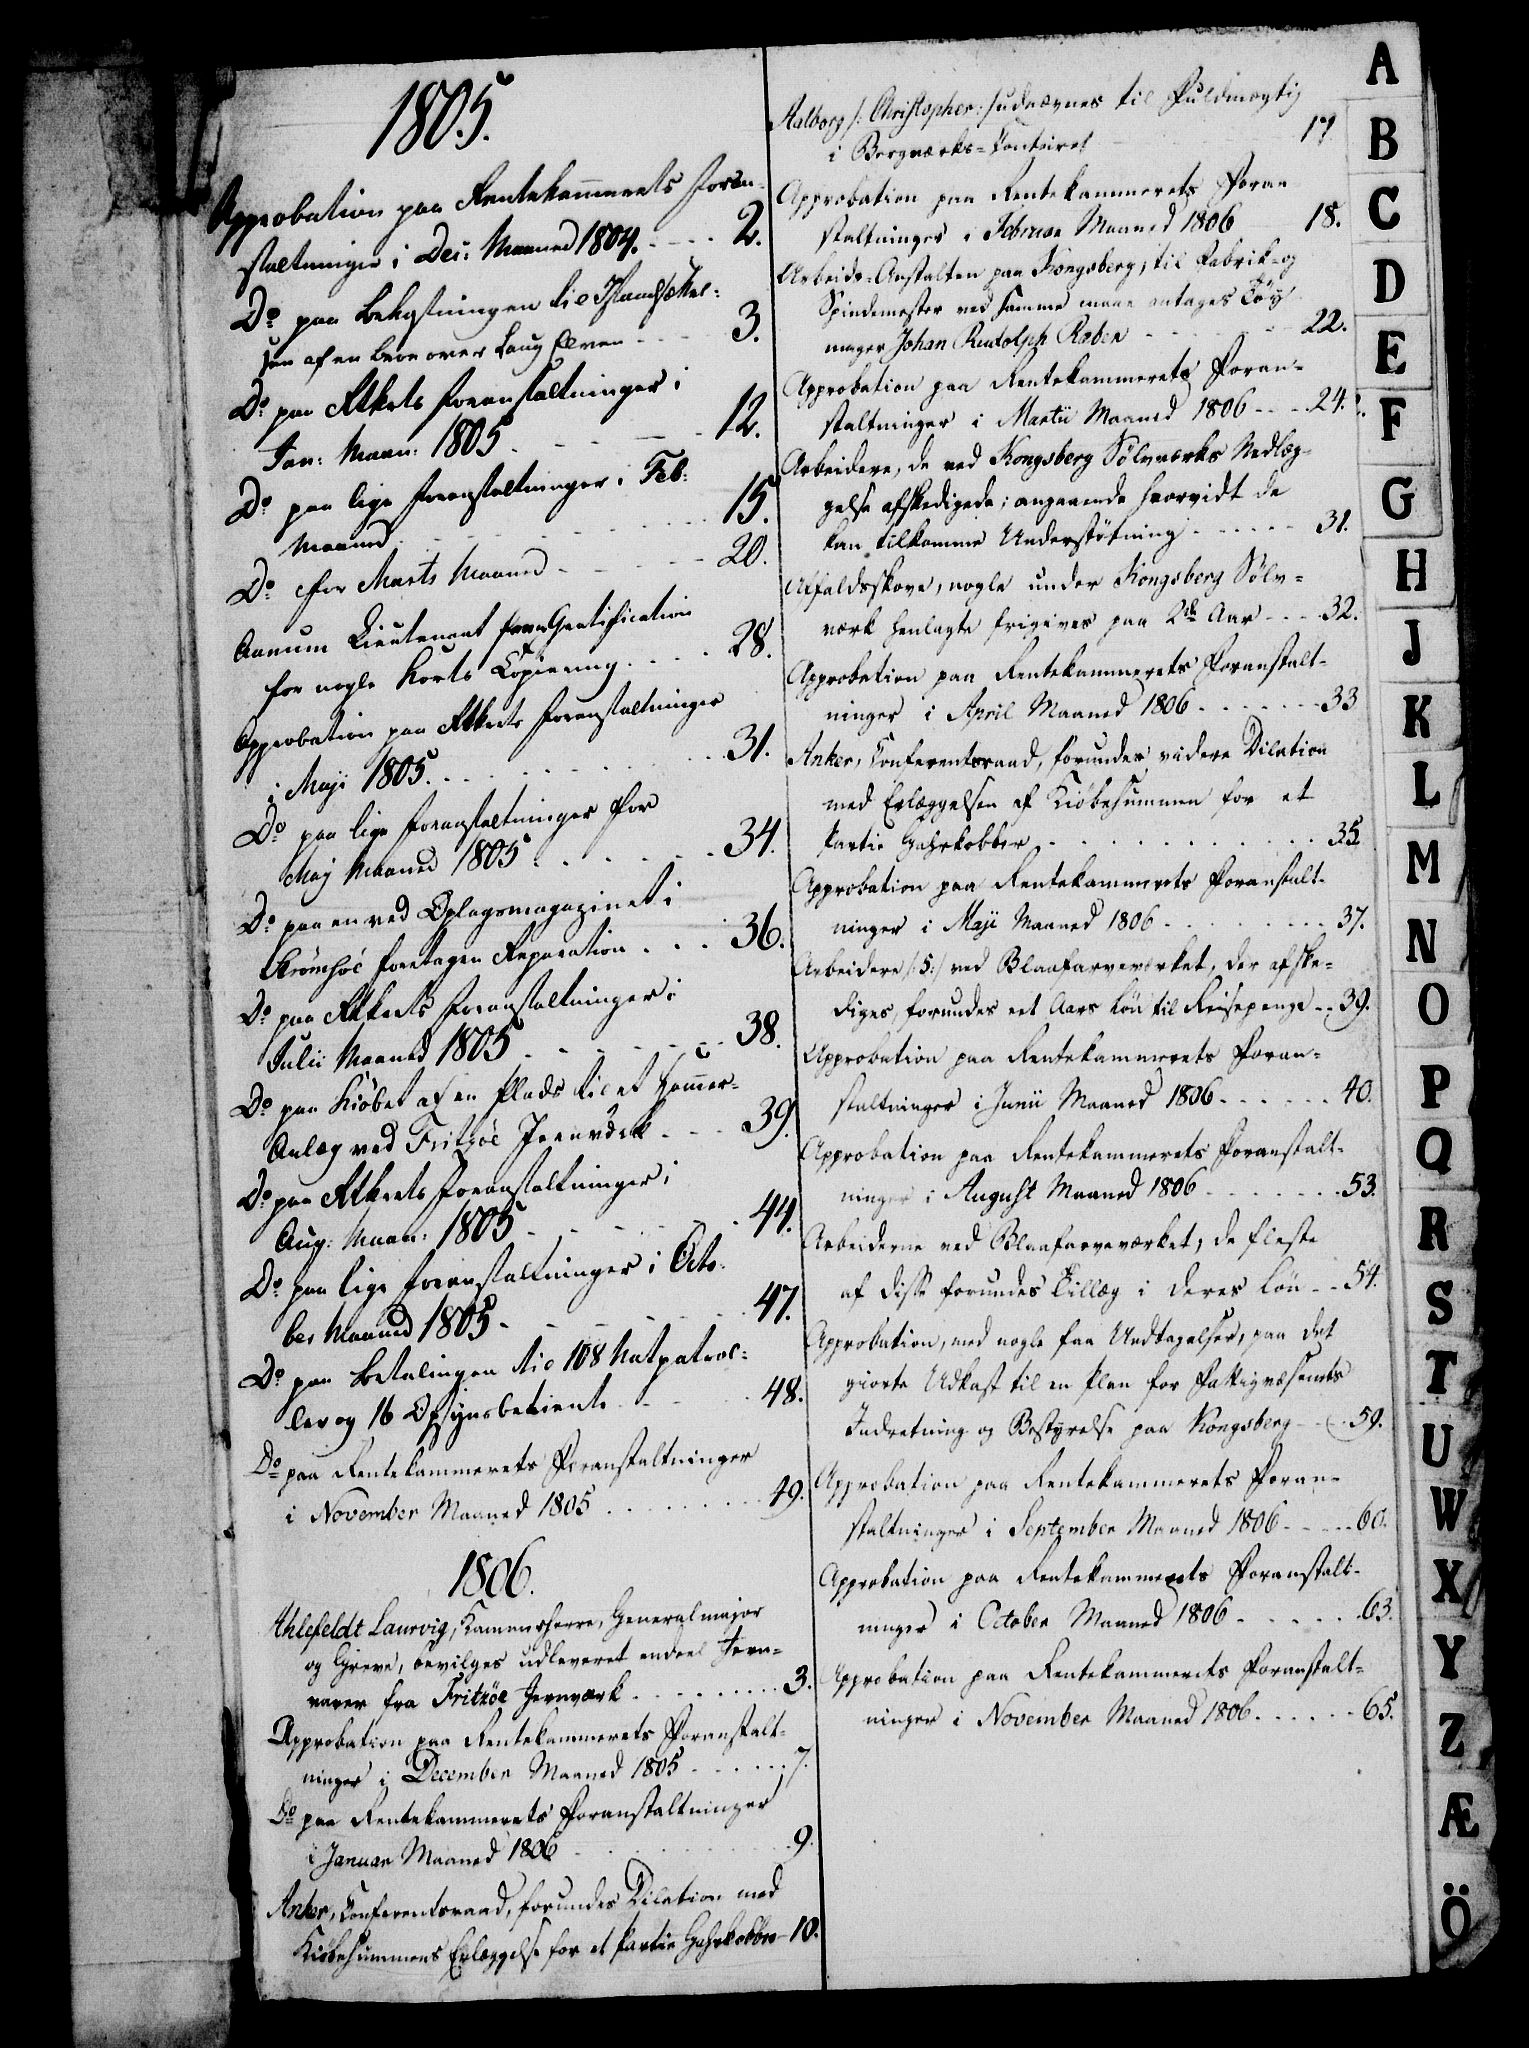 1805.
Approbation paa Rentekammerets foran-
staltninger i Dec: Maaned 1804. - - - - 2.
Do paa bekostningen til
af en broe over Laug Elven - - - 3.
Do paa Rtkrets foranstaltninger i
Jan: Maan: 1805. - - - - - 12.
Do paa lige foranstaltninger i Feb:
Maaned - - - - - - 15.
Do for Marts Maaned - - - - - 20.
Aanum Lieutenant Gratification
for nogle Korts Copiering - - - - 28.
Approbation paa Rtkrets foranstaltninger
i Maji 1805. - - - - - - 31.
Do paa lige foranstaltninger for
Maij Maaned 1805 - - - - - - 34.
Do paa en ved Oplagsmagazinet i
Strømsøe foretagen Reparation - - - 36.
Do paa Rtkrets foranstaltninger i
Julii Maaned 1805 - - - - - - 38.
Do paa Kiøbet af en Plads til et Hammer-
Anlæg ved Fritzøe Jernværk - - - 39.
Do paa Rtkrets foranstaltninger i
Aug: Maan: 1805 - - - - - - 44.
Do paa lige foranstaltninger i Octo-
ber Maaned 1805 - - - - - - 47.
Do paa betalingen til 108 Natpatrol-
ler og 16 Opsynsbetiente - - - - 48.
Do paa Rentekammerets Foranstaltninger
i November Maaned 1805 . . . . . . . 49.
1806.
Ahlefeldt Laurvig, Kammerherre, Generalmajor
og Greve, bevilges udleveret endeel Jern-
varer fra Fritzöe Jernværk . . . . . . . 3.
Approbation paa Rentekammerets Foranstalt-
ninger i December Maaned 1805 . . . . . . 7.
Do paa Rentekammerets Foranstaltninger
i Januar Maaned 1806 . . . . . . 9.
Anker, Conferentsraad, forundes Dilation med
Kiöbesummens Erlæggelse for et Partie Gahrkobber - 10.
Aalborg /: Christopher :/ udnævnes til Fuldmægtig
i Bergværks-Contoiret 17.
Approbation paa Rentekammerets Foran-
staltninger i Februar Maaned 1806 18.
Arbeids-Anstalten paa Kongsberg, til Fabrik- og
Spindemester ved samme maae antages Töy-
mager Johan Rudolph Raben - - - - - - 22.
Approbation paa Rentekammerets Foran-
staltninger i Martii Maaned 1806 - - - 24.
Arbeidere, de ved Kongsberg Sölvværks Nedlæg-
gelse afskedigede; angaaende hvorvidt de
kan tilkomme Understötning - - - - - - 31.
Affaldsskove, nogle under Kongsberg Sölv-
værk henlagte frigives paa 2de Aar - - - 32.
Approbation paa Rentekammerets Foranstalt-
ninger i April Maaned 1806 - - - - - - 33
Anker, Conferentsraad, forundes videre Dilation
med Erlæggelsen af Kiöbesummen for et
Partie Gahrkobber . . . . . . . . . 35.
Approbation paa Rentekammerets Foranstalt-
ninger i Maji Maaned 1806 . . . . . . . 37.
Arbeidere /: 5 :/ ved Blaafarveværket, der afske-
diges, forundes eet Aars Lön til Reisepenge - - 39.
Approbation paa Rentekammerets Foran-
staltninger i Junii Maaned 1806 - - - - - - 40.
Approbation paa Rentekammerets Foranstalt-
ninger i August Maaned 1806 - - - - - - 53.
Arbeiderne ved Blaafarveværket, de fleste
af disse forundes Tillæg i deres Lön - - 54.
Approbation, med nogle faa Undtagelser, paa det
giorte Udkast til en Plan for Fattigvæsenets
Indretning og Bestyrelse paa Kongsberg - - - 59.
Approbation paa Rentekammerets Foran-
staltninger i September Maaned 1806 - - - - 60.
Approbation paa Rentekammerets Foranstalt-
ninger i October Maaned 1806 - - - - - - 63.
Approbation paa Rentekammerets Foranstalt-
ninger i November Maaned 1806 . . . . . . 65.
A
B
C
D
E
F
G
H
J
K
L
M
N
O
P
Q
R
S
T
U
W
X
Y
Z
Æ
Ö